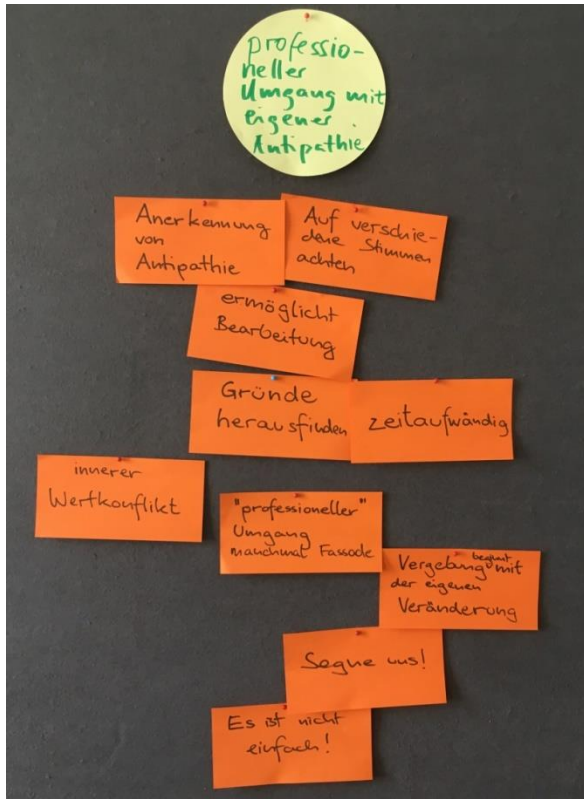 professio-
neller
Umgang mit
eigener
Antipathie
Anerkennung
von
Antipathie
Auf verschie-
dene Stimmen
achten
ermöglicht
Bearbeitung
Gründe
herausfinden
zeitaufwändig
innerer
Wertkonflikt
"professioneller"
Umgang
manchmal Fassade
Vergebung beginnt mit
der eigenen
Veränderung
Segne uns!
Es ist nicht
einfach!